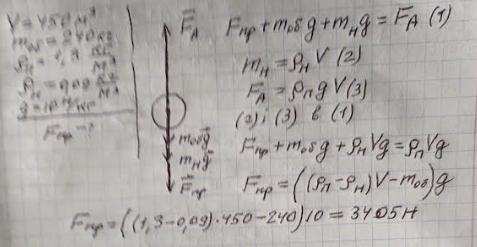 V = 450 м³
m об = 240 кг
ρп = 1,3 кг/м³
ρн = 0,09 кг/м³
g = 10 Н/кг
Fпр - ?
F⃗A
mобg⃗
mнg⃗
F⃗пр
Fпр + mоб g + mн g = F⃗A (1)
mн = ρн V (2)
F⃗A = ρп g V (3)
(2) і (3) в (1)
Fпр + mоб g + ρн Vg = ρп Vg
Fпр = ((ρп - ρн) V - mоб) g
Fпр = ((1,3 - 0,09) · 450 - 240) 10 = 3405 Н